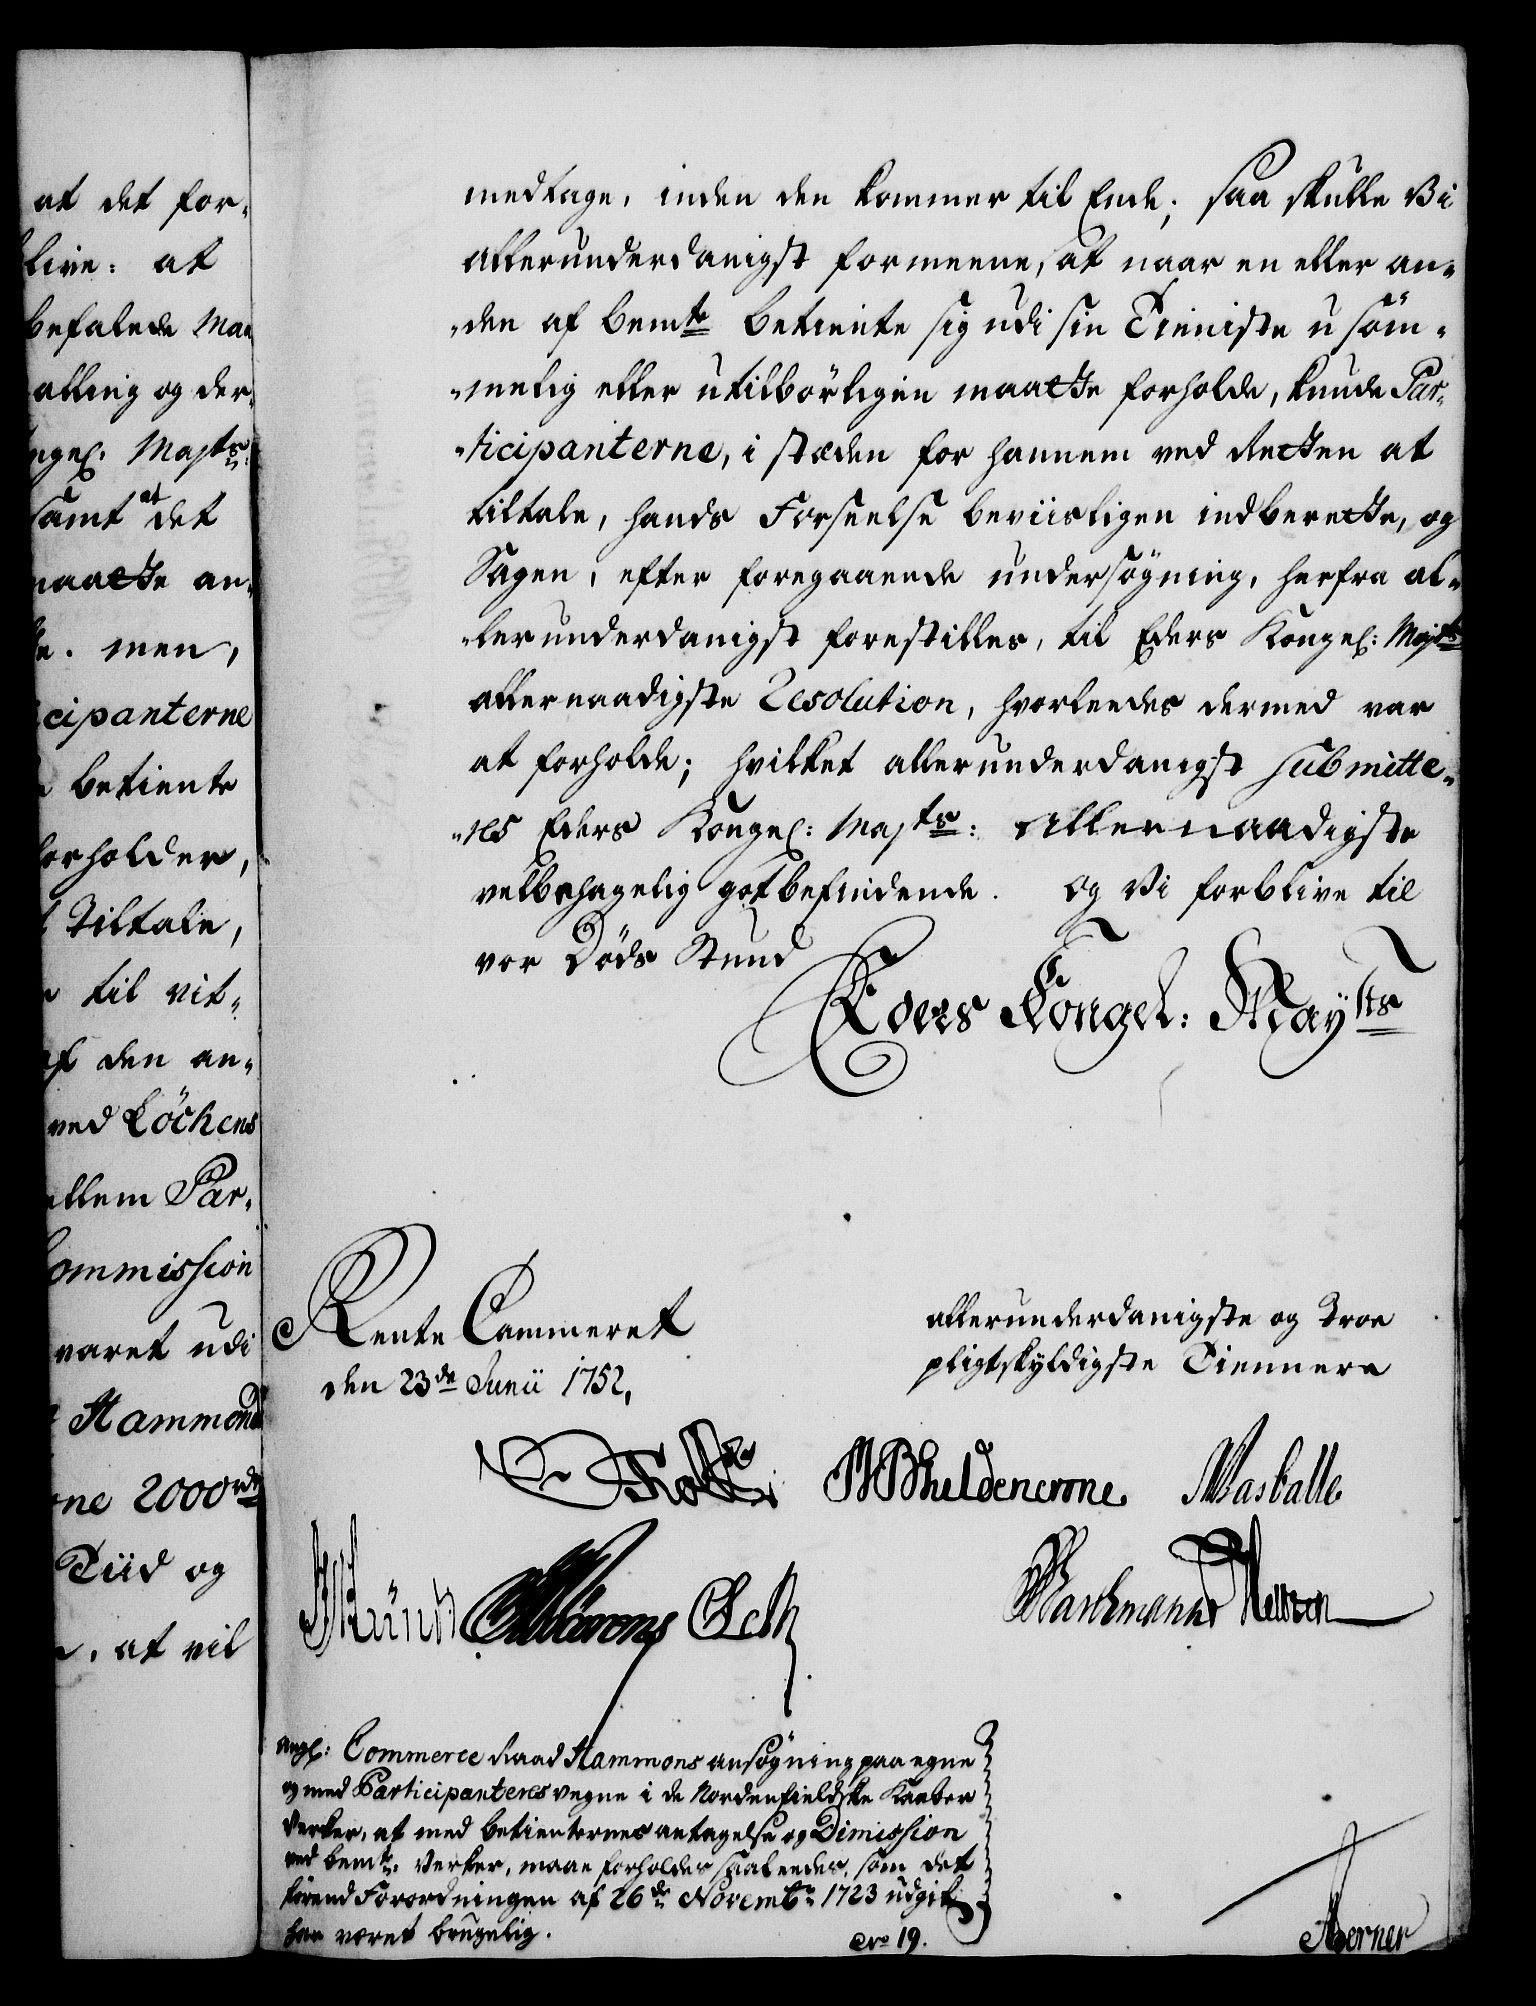 at det for-
blive: at
befalede Maa
alling og der-
ngel. Majts:
samt at det
maatte an-
men,
cipanterne
betiente
forholder,
Tiltale,
til vit-
af den an-
ved Löchens
ellem Par-
Commission
varet udi
Hammonds
ne 2000 rdr
Tiid og
at vil
medtage, inden den kommer til Ende; saa skulle Vi
allerunderdanigst formeene, at naar en eller an-
-den af bemte Betiente sig udi sin Tieniste usöm-
-melig eller utilbörligen maatte forholde, kunde Par-
-ticipanterne, i stæden for hannem ved Retten at
tiltale, hands Forseelse beviisligen indberette, og
Sagen, efter foregaaende undersögning, herfra al-
-lerunderdanigst forestilles, til Eders Kongel: Majts
allernaadigste Resolution, hvorledes dermed var
at forholde; hvilket allerunderdanigst submitte-
-res Eders Kongel: Majts: Allernaadigste
velbehagelig gotbefindende. og Vi forblive til
vor Döds Stund
Eders Kongel: Mayts
Rente Cammeret
den 23de Junii 1752,
allerunderdanigste og Troe
pligtskyldigste Tiennere
Holst
Masballe
angl: Commerce Raad Hammons ansögning paa egne
og med Participanteres vegne i de Nordenfieldske Kaaber
Verker, at med betienternes antagelse og Dimission
ved bemte Verker, maae forholdes saaledes, som det
förend Forordningen af 26de Novembr 1723 udgik
har været brugelig.
No 19.
Berner